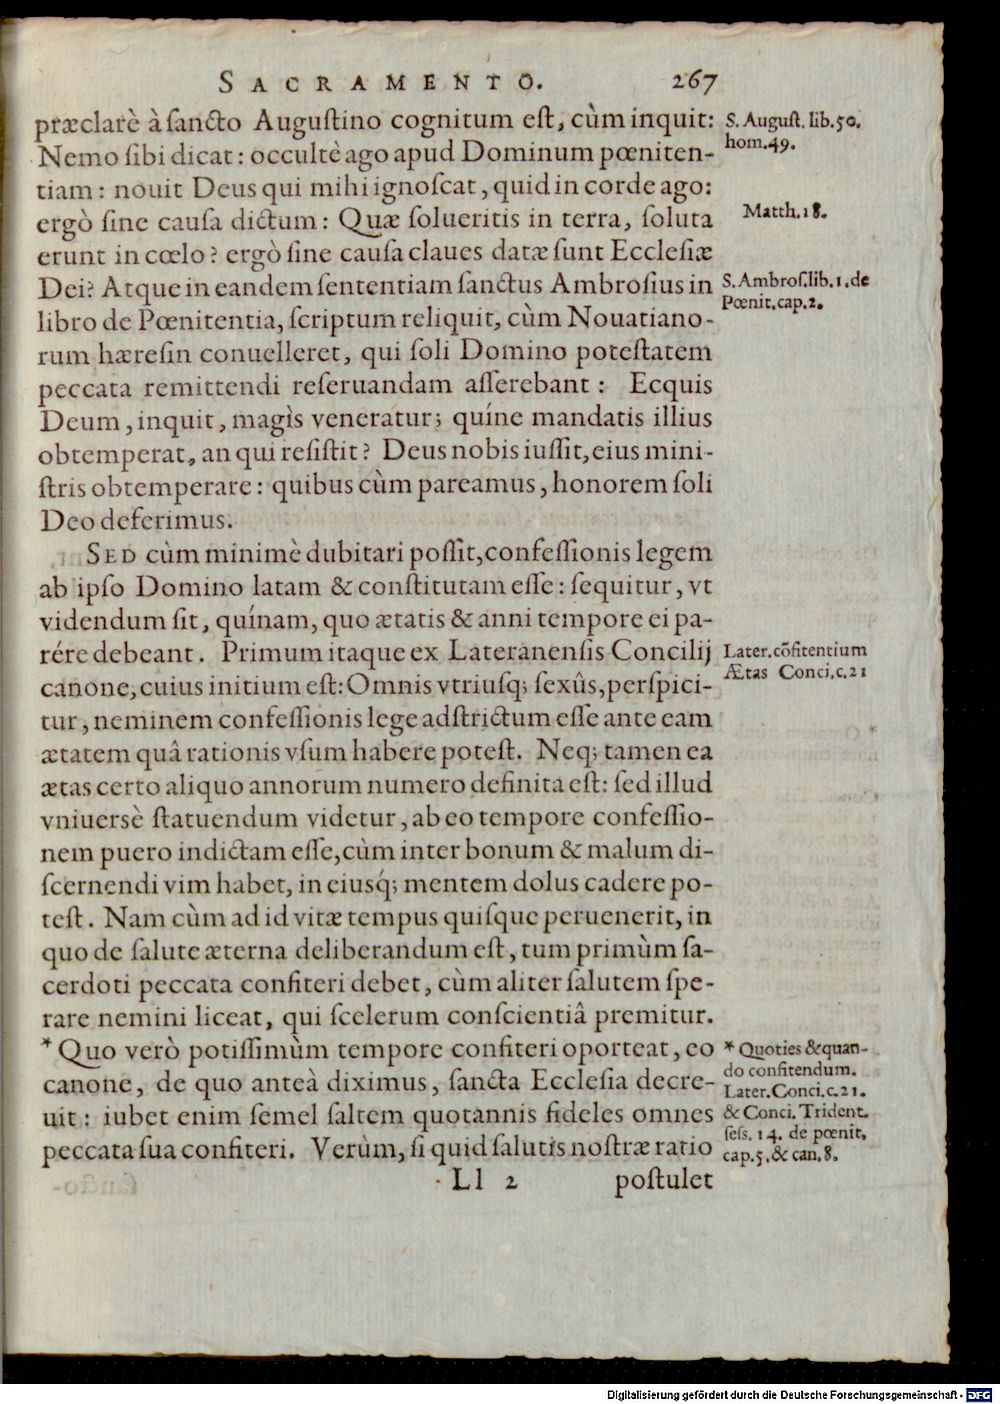 SACRAMENTO. 267
præclarè à ſancto Auguſtino cognitum eſt, cùm inquit:
Nemo ſibi dicat: occultè ago apud Dominum pœniten-
tiam: nouit Deus qui mihi ignoſcat, quid in corde ago:
ergò ſine cauſa dictum: Quæ ſolueritis in terra, ſoluta
erunt in cœlo? ergò ſine cauſa claues datæ ſunt Eccleſiæ
Dei? Atque in eandem ſententiam ſanctus Ambroſius in
libro de Pœnitentia, ſcriptum reliquit, cùm Nouatiano-
rum hæreſin conuelleret, qui ſoli Domino poteſtatem
peccata remittendi reſeruandam aſſerebant: Ecquis
Deum, inquit, magìs veneratur; quíne mandatis illius
obtemperat, an qui reſiſtit? Deus nobis iuſſit, eius mini-
ſtris obtemperare: quibus cùm pareamus, honorem ſoli
Deo deferimus.
SED cùm minimè dubitari poſſit, confeſſionis legem
ab ipſo Domino latam & conſtitutam eſſe: ſequitur, vt
videndum ſit, quínam, quo ætatis & anni tempore ei pa-
rére debeant. Primum itaque ex Lateranenſis Concilij
canone, cuius initium eſt: Omnis vtriuſq; ſexûs, perſpici-
tur, neminem confeſſionis lege adſtrictum eſſe ante eam
ætatem quâ rationis vſum habere poteſt. Neq; tamen ea
ætas certo aliquo annorum numero definita eſt: ſed illud
vniuersè ſtatuendum videtur, ab eo tempore confeſſio-
nem puero indictam eſſe, cùm inter bonum & malum di-
ſcernendi vim habet, in eiusq́; mentem dolus cadere po-
teſt. Nam cùm ad id vitæ tempus quiſque peruenerit, in
quo de ſalute æterna deliberandum eſt, tum primùm ſa-
cerdoti peccata confiteri debet, cùm aliter ſalutem ſpe-
rare nemini liceat, qui ſcelerum conſcientiâ premitur.
* Quo verò potiſſimùm tempore confiteri oporteat, eo
canone, de quo anteà diximus, ſancta Eccleſia decre-
uit: iubet enim ſemel ſaltem quotannis fideles omnes
peccata ſua confiteri. Verùm, ſi quid ſalutis noſtræ ratio
Ll 2 poſtulet
S. Auguſt. lib. 50.
hom. 49.
Matth. 18.
S. Ambroſ. lib. 1. de
Pœnit. cap. 2.
Later. cõfitentium
Ætas Conci. c. 21
* Quoties & quan-
do confitendum.
Later. Conci. c. 21.
& Conci. Trident.
ſeſs. 14. de pœnit.
cap. 5. & can. 8.
Digitalisierung gefördert durch die Deutsche Forschungsgemeinschaft - DFG